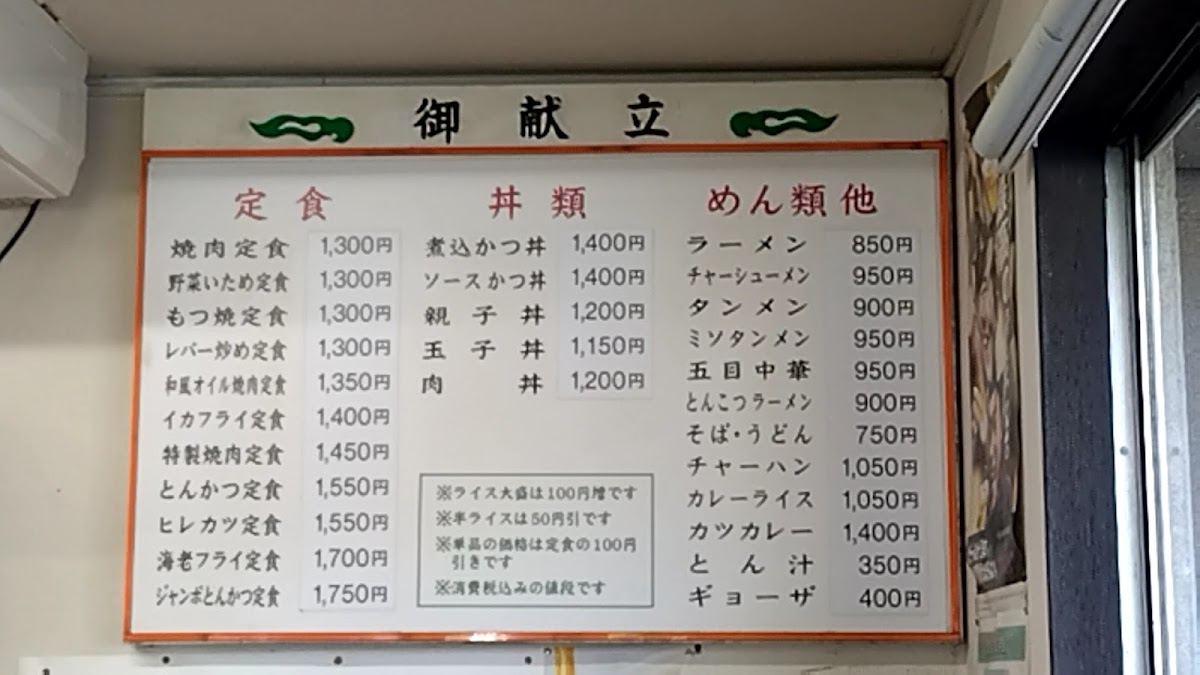 御献立
定食
焼肉定食 1,300円
野菜いため定食 1,300円
もつ焼定食 1,300円
レバー炒め定食 1,300円
和風オイル焼肉定食 1,350円
イカフライ定食 1,400円
特製焼肉定食 1,450円
とんかつ定食 1,550円
ヒレカツ定食 1,550円
海老フライ定食 1,700円
ジャンボとんかつ定食 1,750円
丼類
煮込かつ丼 1,400円
ソースかつ丼 1,400円
親子丼 1,200円
玉子丼 1,150円
肉丼 1,200円
※ライス大盛は100円増です
※半ライスは50円引です
※単品の価格は定食の100円
引きです
※消費税込みの値段です
めん類他
ラーメン 850円
チャーシューメン 950円
タンメン 900円
ミソタンメン 950円
五目中華 950円
とんこつラーメン 900円
そば・うどん 750円
チャーハン 1,050円
カレーライス 1,050円
カツカレー 1,400円
とん汁 350円
ギョーザ 400円